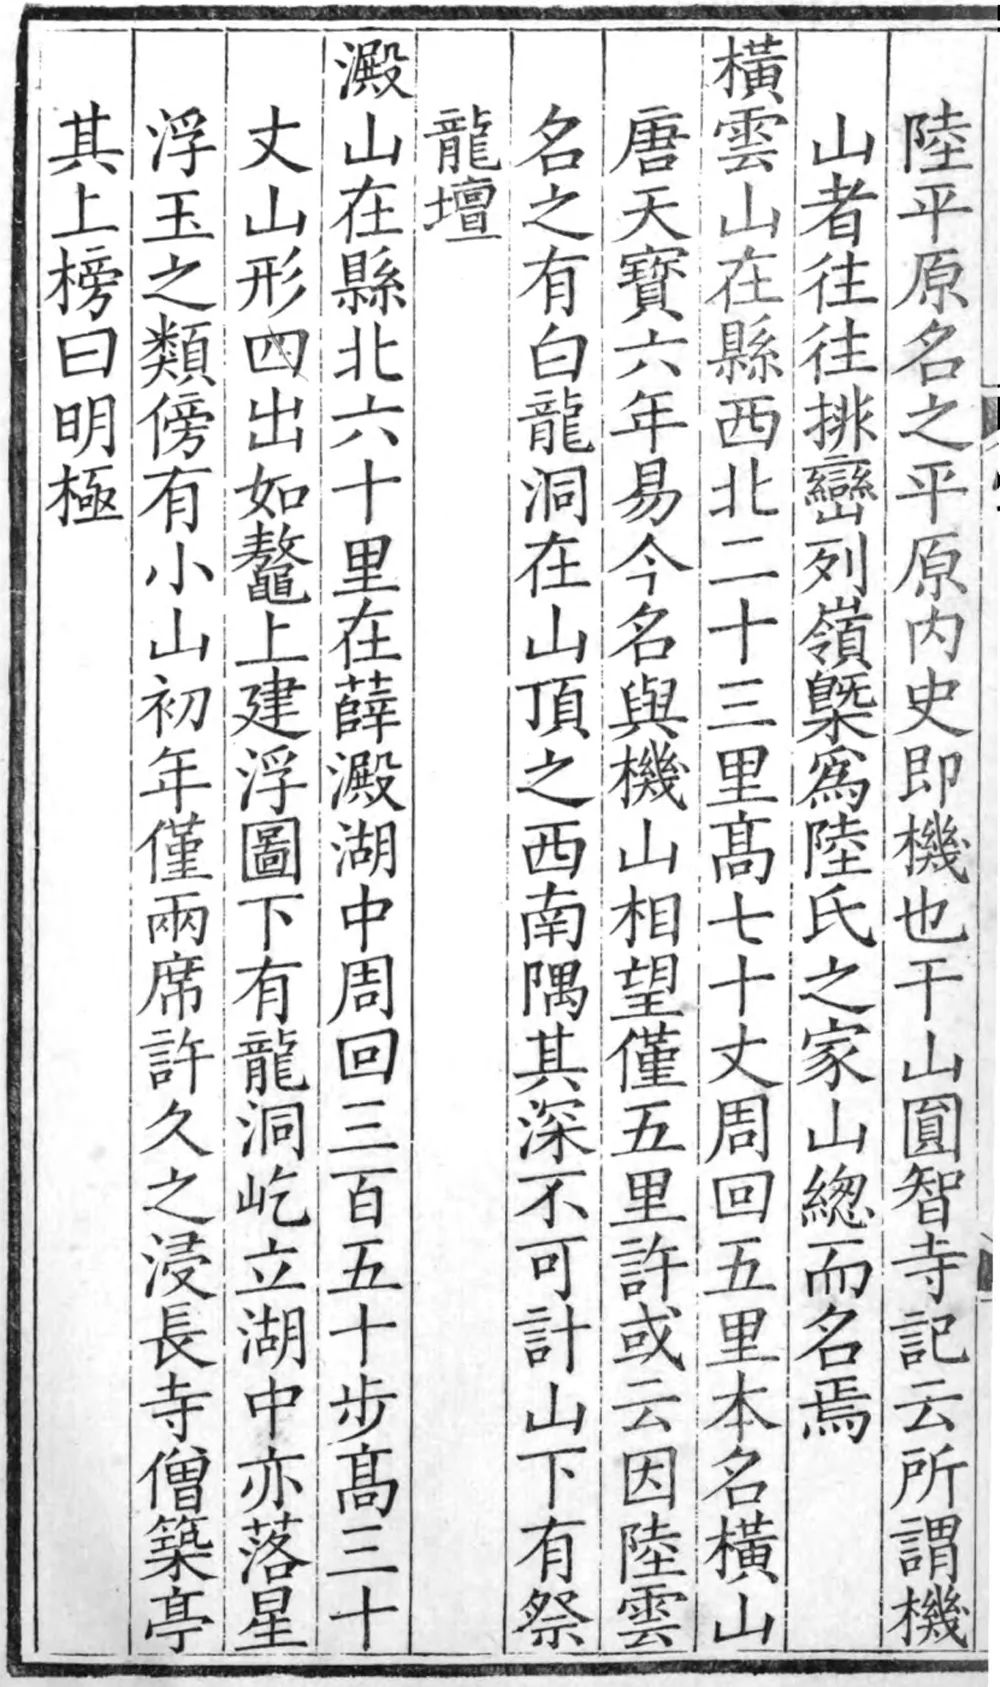 陸平原名之平原内史即機也干山圓智寺記云所謂機
山者往往挑巒列嶺槩爲陸氏之家山總而名焉
橫雲山在縣西北二十三里髙七十丈周回五里本名橫山
唐天寶六年易今名與機山相望僅五里許或云因陸雲
名之有白龍洞在山頂之西南隅其深不可計山下有祭
龍壇
澱山在縣北六十里在薛澱湖中周回三百五十步髙三十
丈山形四出如鼇上建浮圖下有龍洞屹立湖中亦落星
浮玉之類傍有小山初年僅兩席許久之浸長寺僧築亭
其上榜曰明極